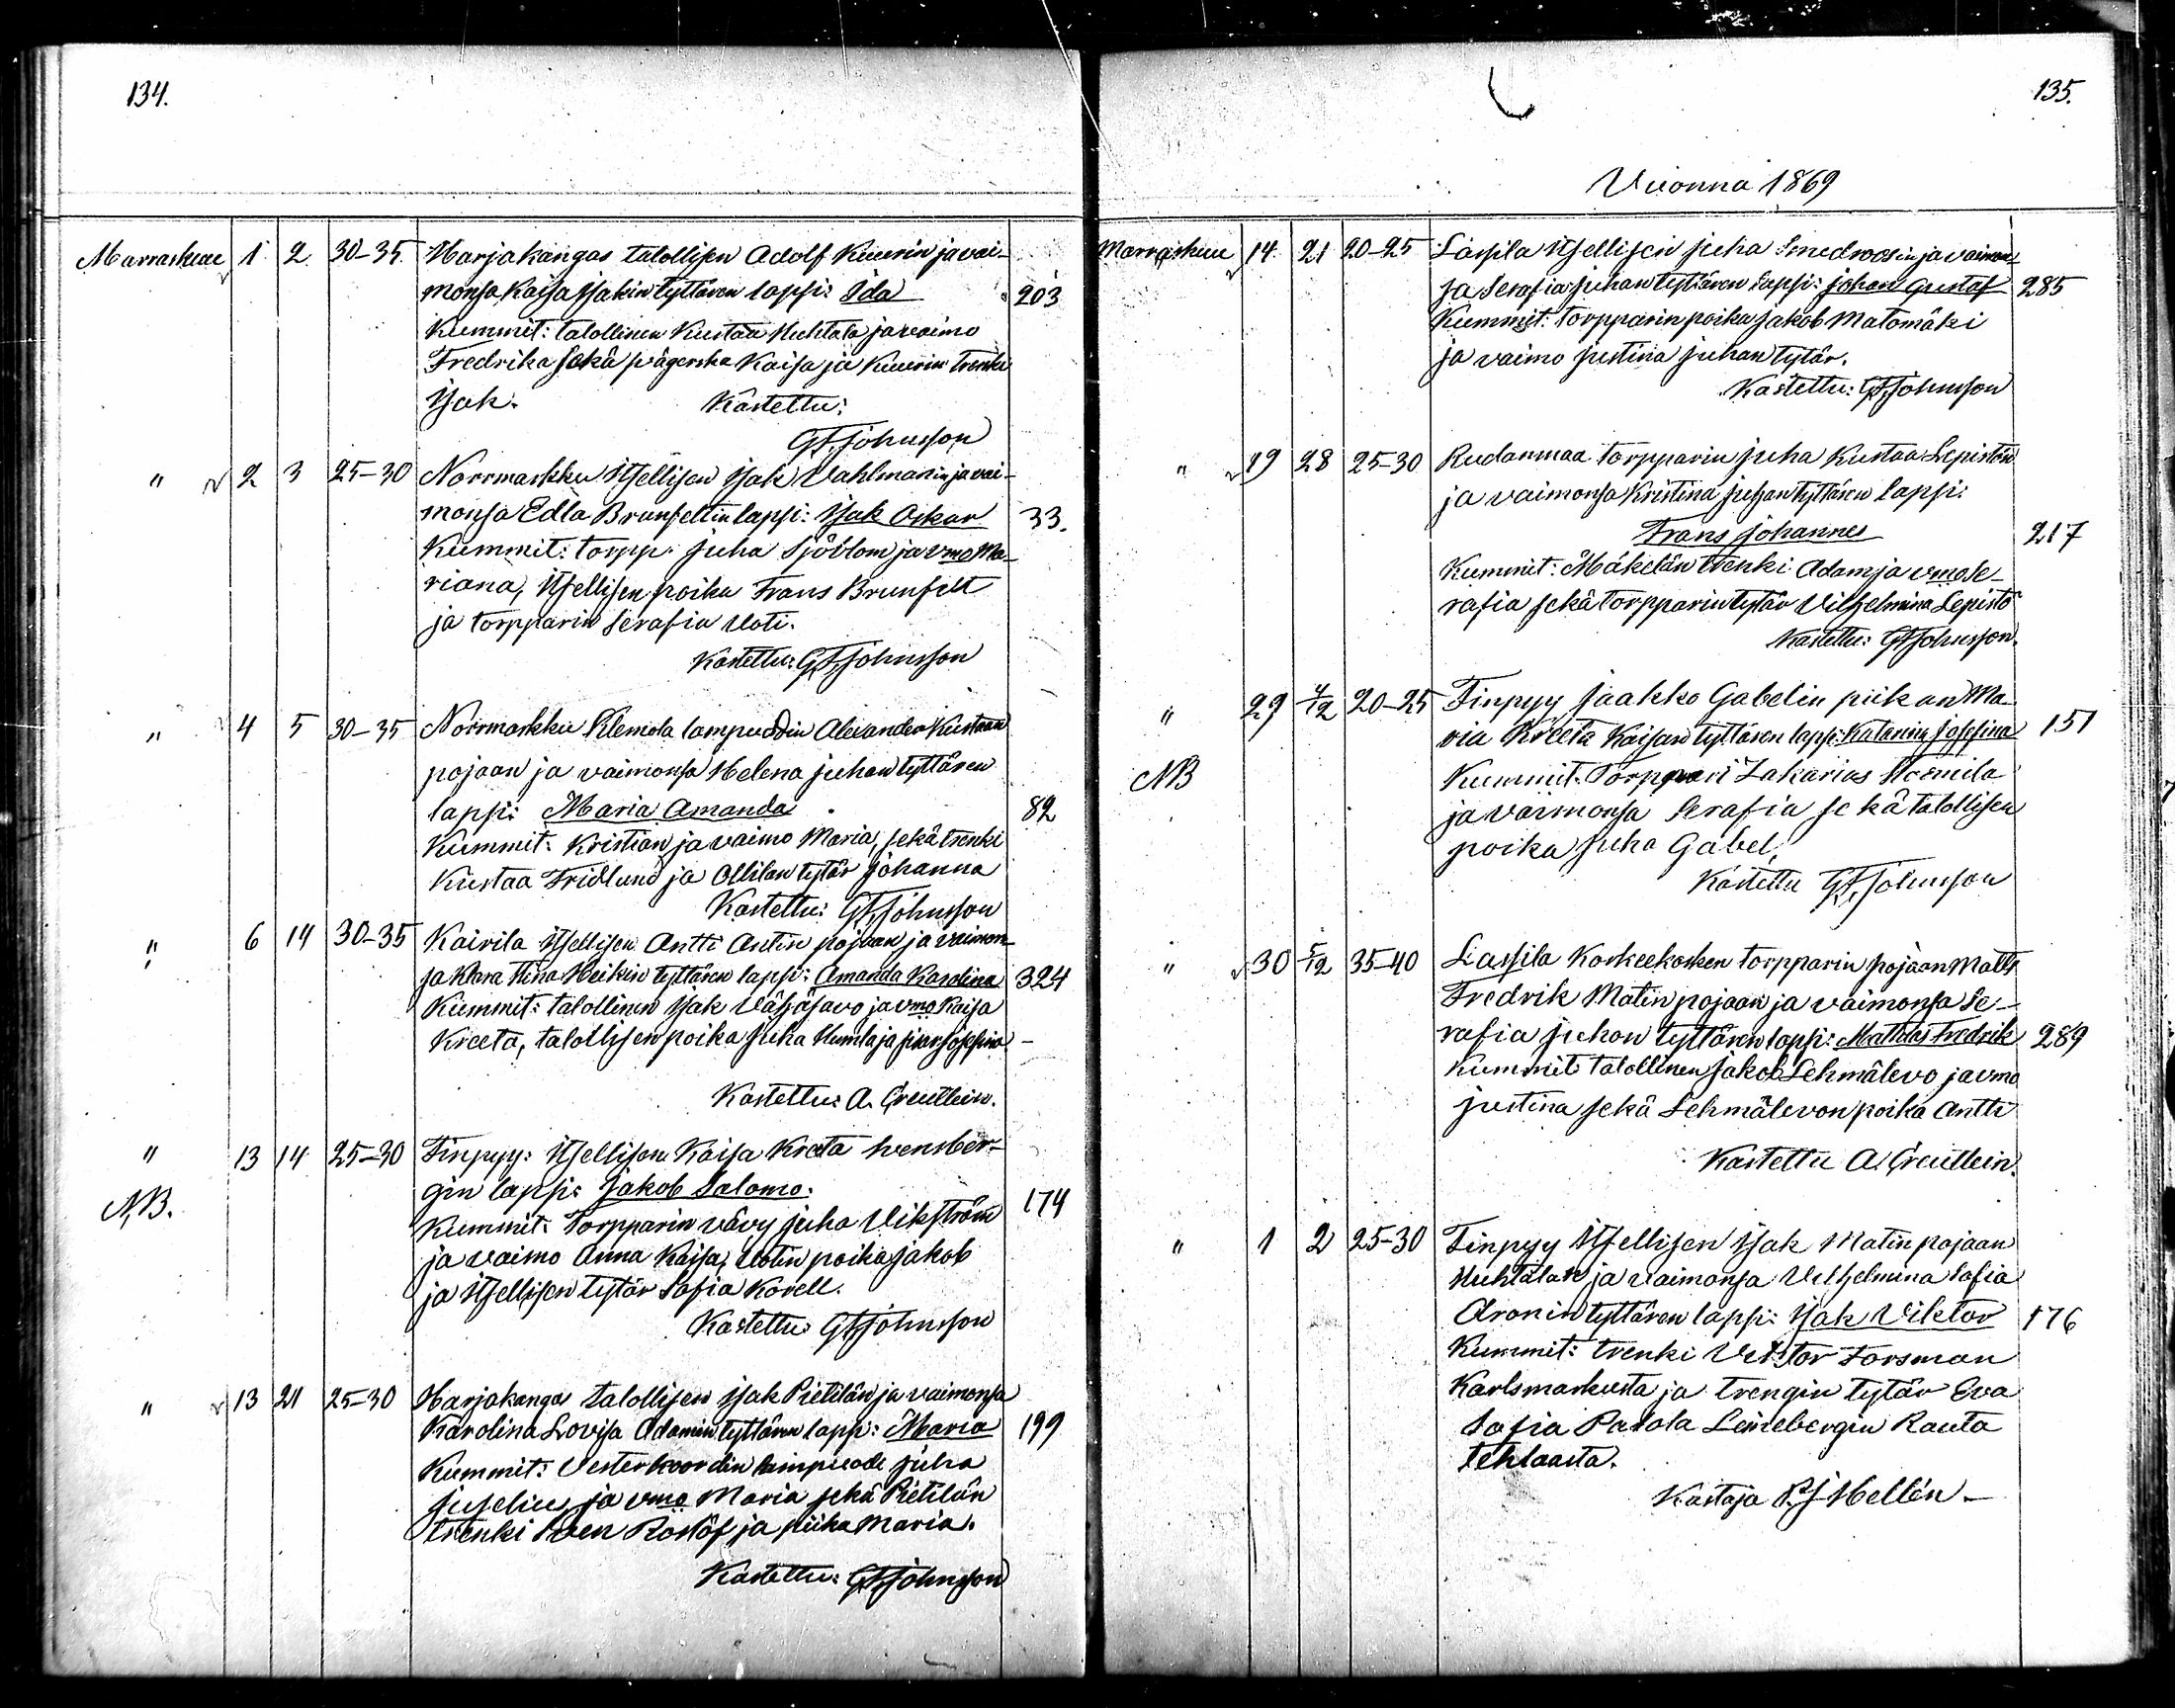 134.
Marraskuu 1 2 30-35 Harjakangas talollisen Adolf Kuurin ja vai-
monsa Kaisa Isakin tyttären lapsi: Ida 203
Kummit: talollinen Kustaa Huhtala ja vaimo
Fredrika sekä Kaisa ja Kuurin trenki
Isak. Kastettu:
G F Johnsson
" 2 3 25-30 Norrmarkku itsellisen Isak Vahlmanin ja vai-
monsa Edla Brunfeltin lapsi: Isak Oskar 33.
Kummit: torpp. Juha Sjöblom ja vmo Ma-
riana, itsellisen poika Frans Brunfelt
ja torpparin Serafia Uoti.
Kastettu: G F Johnsson
" 4 5 30-35 Norrmarkku Klemola lampuodin Alexander Kustaan
pojaan ja vaimonsa Helena Juhan tyttären
lapsi: Maria Amanda 82
Kummit: Kristian ja vaimo Maria, sekä trenki
Kustaa Fridlund ja Ollilan tytär Johanna
Kastettu: G F Johnsson
" 6 14 30-35 Kairila itsellisen Antti Antin pojaan ja vaimon-
sa Klara Stina Heikin tyttären lapsi: Amanda Karolina 324
Kummit: talollinen Isak Vähäsavo ja vmo Kaisa
Kreeta, talollisen poika Juha Humla ja Josefina
Kastettu: A. Greutlein.
" 13 14 25-30 Finpyy: itsellisen Kaisa Kreta Svensber-
NB.
gin lapsi: Jakob Salomo. 174
Kummit: Torpparin vävy Juha Vikström
ja vaimo Anna Kaisa, Uotin poika Jakob
ja itsellisen tytär Sofia Korell.
Kastettu: G F Johnsson
" 13 21 25-30 Harjakangas talollisen Isak Pietilän ja vaimonsa
Karolina Lovisa Adamin tyttären lapsi: Maria 199
Kummit: Vesterkoordin lampuode Juha
Juselius ja vmo Maria sekä Pietilän
trenki Sven Röstöf ja piika Maria.
Kastettu: G F Johnsson
135.
Vuonna 1869
Marraskuu 14 21 20-25 Lassila itsellisen Juha Smedroosin ja vaimon-
sa Serafia Juhan tyttären lapsi: Johan Gustaf 285
Kummit: torpparin poika Jakob Matomäki
ja vaimo Justina Juhan tytär.
Kastettu: G F Johnsson
" 19 28 25-30 Rudanmaa torpparin Juha Kustaa Lepistön
ja vaimonsa Kristina Juhan tyttären lapsi:
Frans Johannes 217
Kummit: Mäkelän trenki Adam ja vmo Se-
rafia sekä torpparin tytär Vilhelmina Lepistö
Kastettu: G F Johnsson.
" 29 4/12 20-25 Finpyy Jaakko Gabelin piikan Ma-
ria Kreeta Kaisan tyttären lapsi: Katarina Josefina 151
NB
Kummit: Torppari Sakarias
ja vaimonsa Serafia sekä talollisen
poika Juha Gabel,
Kastettu G F Johnsson
" 30 5/12 35-40 Lassila Koskeekosken torpparin pojaan Matts
Fredrik Matin pojaan ja vaimonsa Se-
rafia Juhan tyttären lapsi: Mathias Fredrik 289
Kummit: talollinen Jakob Lehmälevo ja vmo
Justina sekä Lehmälevon poika Antti
Kastettu A. Greutlein.
" 1 2 25-30 Finpyy itsellisen Isak Matin pojaan
Huhtalan ja vaimonsa Vilhelmina Sofia
Aronin tyttären lapsi: Isak Viktor 176
Kummit: trenki Viktor Forsman
Karlsmarkusta ja trengin tytär Eva
Sofia Palola Leinebergin Rauta
tehtaasta.
Kastaja P. J. Hellén